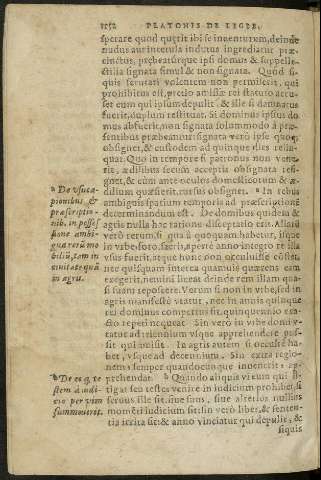 1152 PLATONIS DE LEGIB.
sperare quod quærit ibi se inuenturum, deinde
nudus aut interula indutus ingrediatur præ
cinctus, præbeatúrque ipsi domus & suppelle-
ctilia signata simul & non signata. Quòd si
quis scrutari volentem non permiserit, qui
prohibitus est, pretio amissæ rei statuto accu-
set eum qui ipsum depulit. & ille si damnatus
fuerit, duplum restituat. Si dominus ipsius do
mus abfuerit, non signata solummodo à præ-
sentibus præbeantur: signata verò ipse quoq;
obsignet, & custodem ad quinque dies relin-
quat. Quo in tempore si patronus non vene
rit, ædilibus secum acceptis obsignata resi-
gnet, & cùm ante oculos domesticorum & æ-
dilium quæsierit, rursus obsignet. In rebus
ambiguis spatium temporis ad præscriptionē
determinandum est. De domibus quidem &
agris nulla hac ratione disceptatio erit. Aliarū
verò rerum, si qua à quoquam habetur, ísque
in vrbe, foro, sacris, apertè anno integro re illa
vsus fuerit, atque hunc non occuluisse cōstet,
nec quisquam interea quamuis quærens eam
exegerit, nemini liceat deinde rem illam qua-
si suam reposcere. Verùm si non in vrbe, sed in
agris manifestè vtatur, nec in annis quinque
rei dominus competitus sit, quinquennio exa-
cto repeti nequeat. Sin verò in vrbe domi v-
tatur, ad triennium vsque apprehendere pos-
sit qui amisit. In agris autem si occultè ha-
bet, vsque ad decennium. Sin extra regio-
nem, semper quandocunque inuenerit, ap-
prehendat. Quando aliquis vi cum qui li-
tigat seu testes venire in iudicium prohibet, si
seruus ille sit, siue suus, siue alterius nullius
momēti iudicium sit: sin verò liber, & senten-
tia irrita sit: & anno vinciatur qui depulit, &
siquis
De vsuca-
pionibus &
præscriptio-
nib. in posses
sione ambi-
guæ verū mo
biliū, tam in
ciuitate quā
in agro.
De eo q. te
stem à iudi-
cio per vim
summouerit.